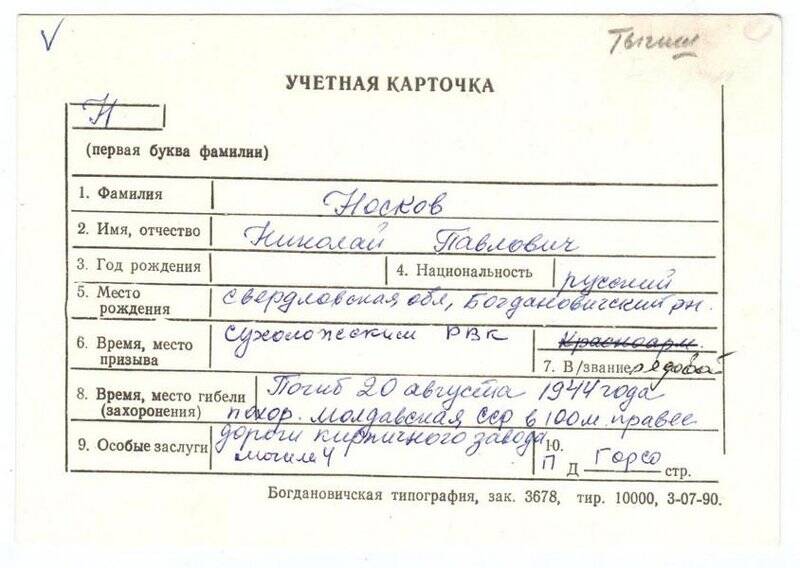 Тыгиш
УЧЕТНАЯ КАРТОЧКА
Н
(первая буква фамилии)
1. Фамилия Носков
2. Имя, отчество Николай Павлович
3. Год рождения 4. Национальность русский
5. Место рождения свердловская обл, Богдановичский рн.
6. Время, место призыва Сухоложским РВК Красноарм.
7. В/звание рядовой
8. Время, место гибели Погиб 20 августа 1944 года
(захоронения) похор. Молдавская ССР в 100м. правее
дороги кирпичного завода
9. Особые заслуги могиле 4 10.
П Д Горсо стр.
Богдановичская типография, зак. 3678, тир. 10000, 3-07-90.